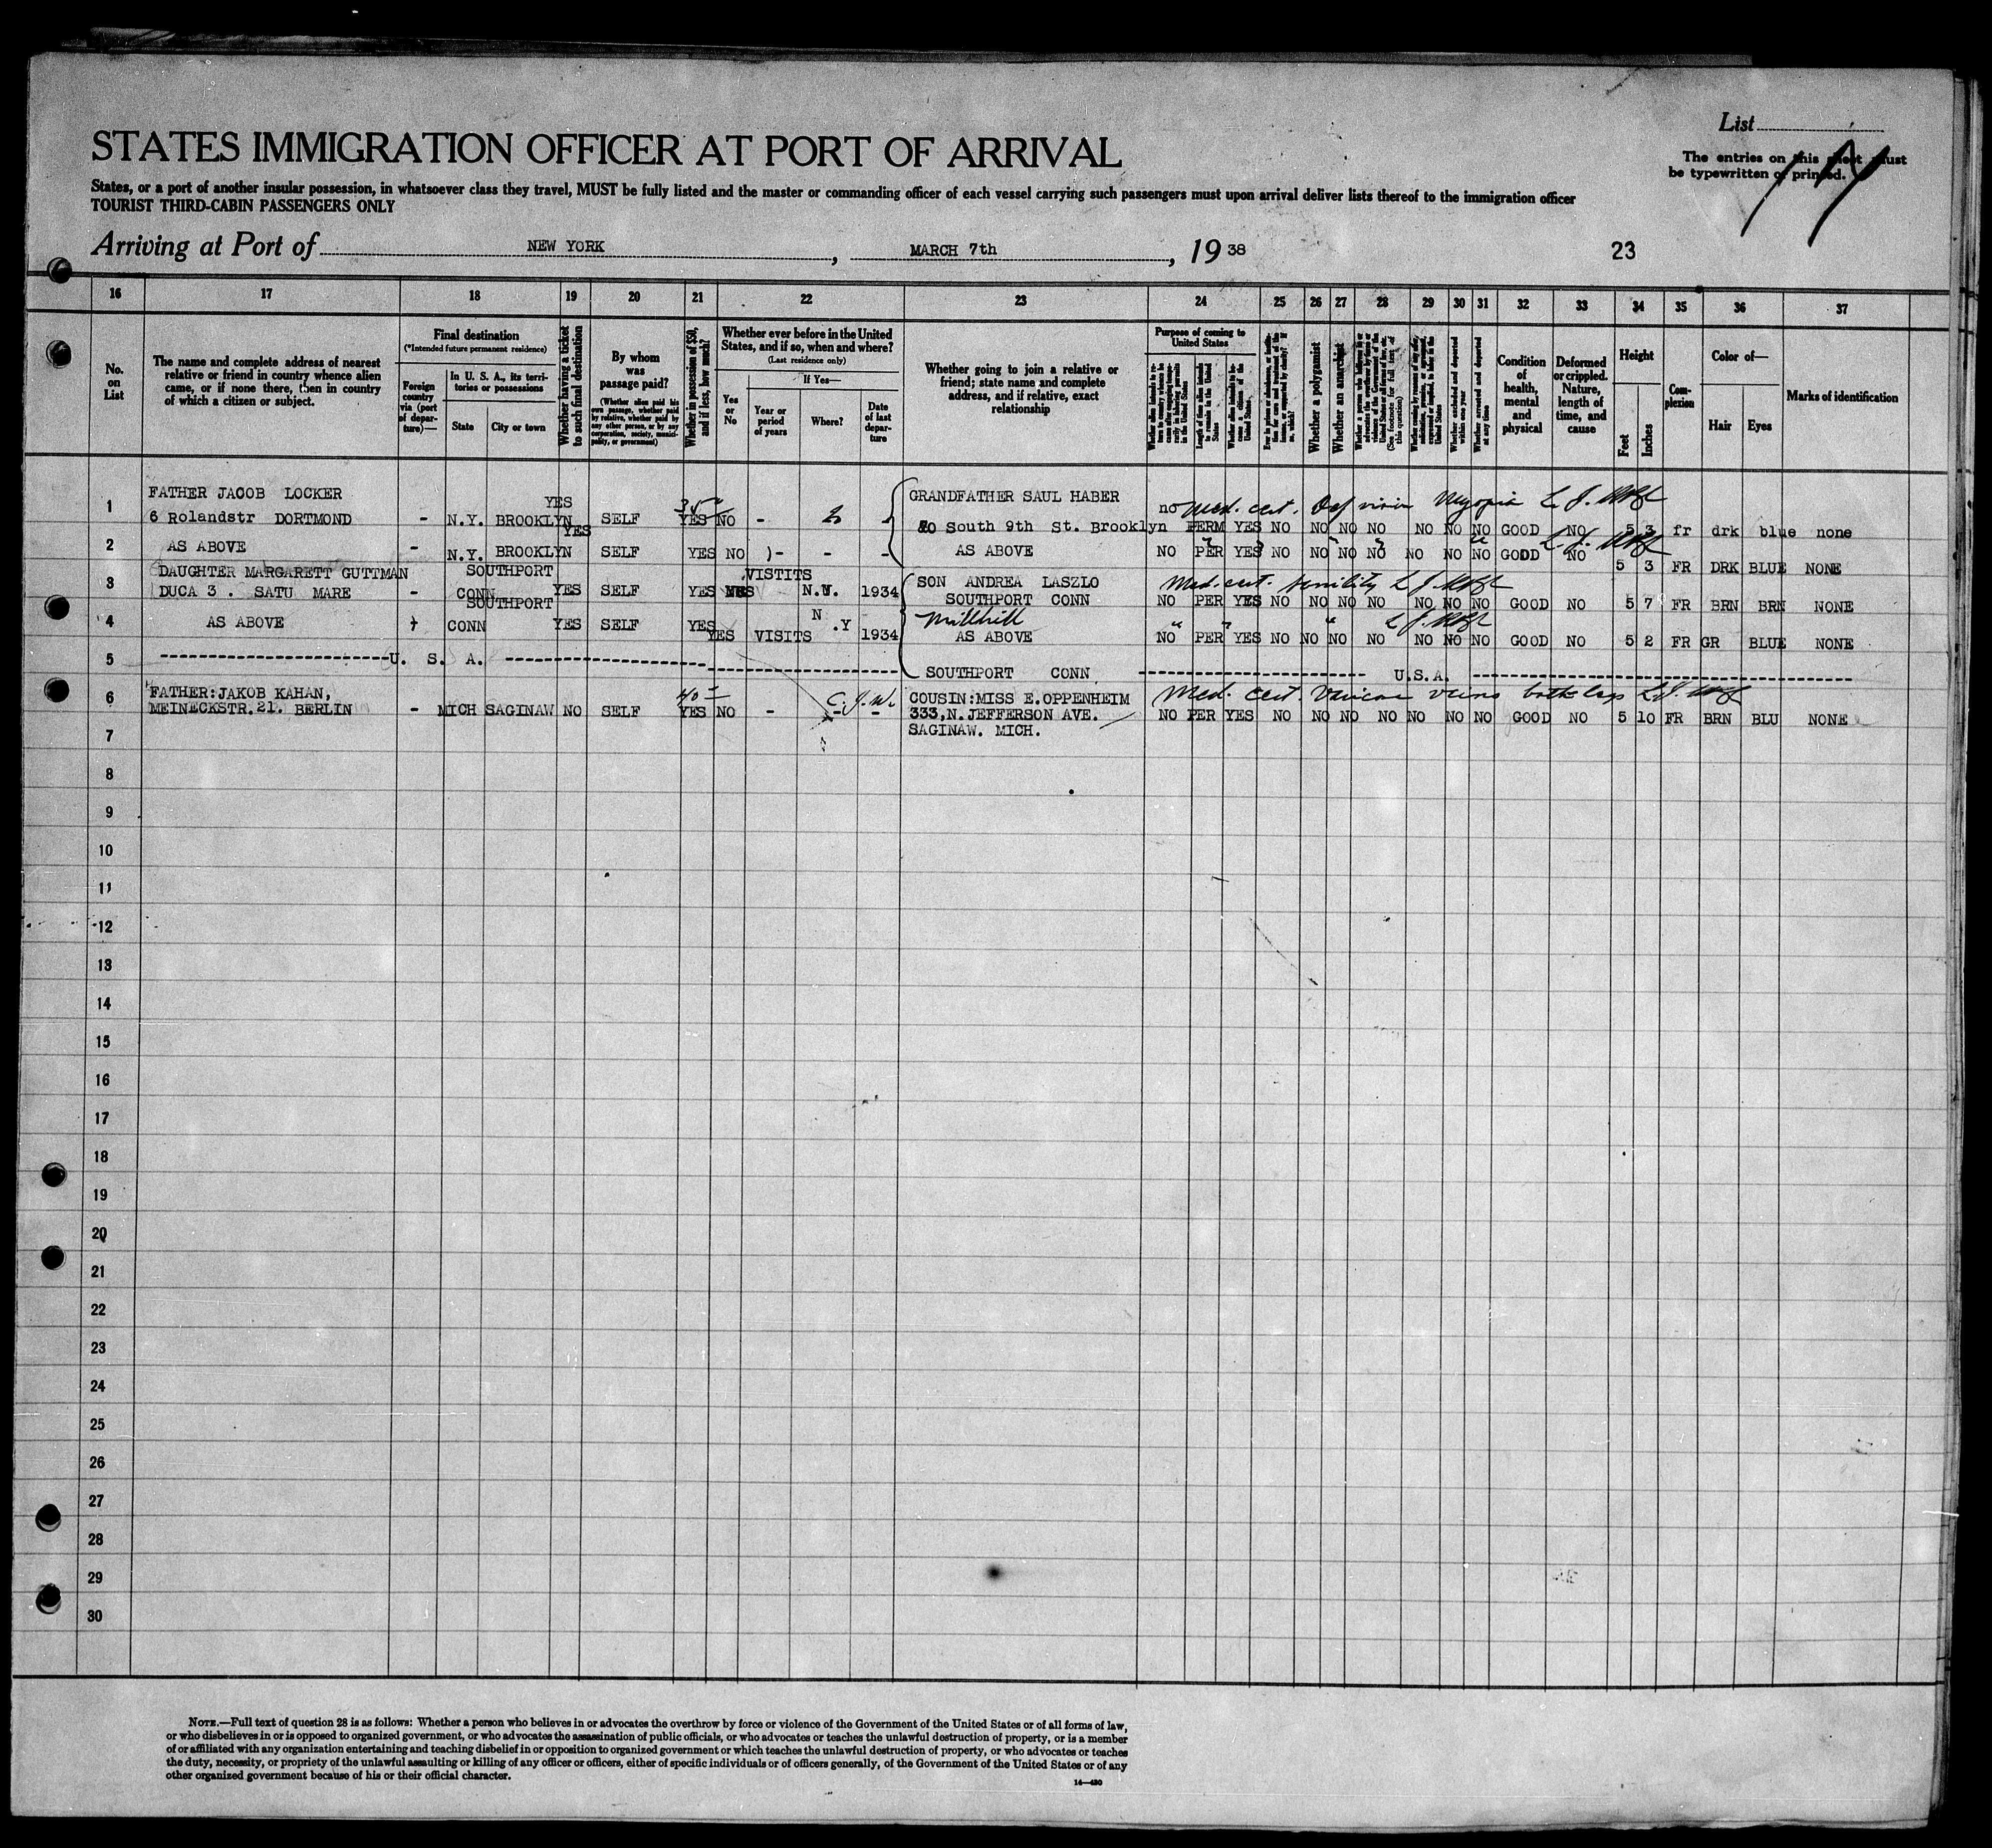 List
The entries on this sheet must
be typewritten or printed.
STATES IMMIGRATION OFFICER AT PORT OF ARRIVAL
States, or a port of another insular possession, in whatsoever class they travel, MUST be fully listed and the master or commanding officer of each vessel carrying such passengers must upon arrival deliver lists thereof to the immigration officer
TOURIST THIRD-CABIN PASSENGERS ONLY
Arriving at Port of NEW YORK, MARCH 7th, 19 38 23
16 17 18 19 20 21 22 23 24 25 26 27 28 29 30 31 32 33 34 35 36 37
No. on List
The name and complete address of nearest relative or friend in country whence alien came, or if none there, then in country of which a citizen or subject.
Final destination
(*Intended future permanent residence)
Foreign country via (port of departure)—
In U. S. A., its territories or possessions
State
City or town
Whether having a ticket to such final destination
By whom was passage paid?
(Whether alien paid his own passage, whether paid by relative, whether paid by any other person, or by any corporation, society, municipality, or government)
Whether in possession of $50, and if less, how much?
Whether ever before in the United States, and if so, when and where?
(Last residence only)
Yes or No
If Yes—
Year or period of years
Where?
Date of last departure
Whether going to join a relative or friend; state name and complete address, and if relative, exact relationship
Purpose of coming to United States
Length of time alien intends to remain in the United States
Whether alien intends to become a citizen of the United States
Whether a polygamist
Whether an anarchist
(See footnote for full text of this question)
Whether excluded and deported within one year
Whether arrested and deported at any time
Condition of health, mental and physical
Deformed or crippled. Nature, length of time, and cause
Height
Feet
Inches
Complexion
Color of—
Hair
Eyes
Marks of identification
FATHER JACOB LOCKER YES GRANDFATHER SAUL HABER no Med. cert. Def vision Myopia
1 6 Rolandstr DORTMOND - N.Y. BROOKLYN SELF YES NO - - South 9th St. Brooklyn PERM YES NO NO NO NO NO NO NO GOOD NO 5 3 fr drk blue none
2 AS ABOVE - N.Y. BROOKLYN YES SELF YES NO - - - AS ABOVE NO PER YES NO NO NO NO NO NO NO GOOD NO 5 3 FR DRK BLUE NONE
DAUGHTER MARGARETT GUTTMAN SOUTHPORT VISTITS SON ANDREA LASZLO Med. cert. senility
3 DUCA 3 . SATU MARE - CONN YES SELF YES 1934 SOUTHPORT CONN NO PER YES NO NO NO NO NO NO NO GOOD NO 5 7 FR BRN BRN NONE
SOUTHPORT Millhill
4 AS ABOVE CONN YES SELF YES YES VISITS N .Y 1934 AS ABOVE NO PER YES NO NO NO NO NO NO NO GOOD NO 5 2 FR GR BLUE NONE
5 U. S. A. SOUTHPORT CONN U.S.A.
FATHER:JAKOB KAHAN, 40 C.J.W. COUSIN:MISS E.OPPENHEIM Med. cert. Varicose veins both legs
6 MEINECKSTR.21. BERLIN - MICH SAGINAW NO SELF YES NO - - - 333,N.JEFFERSON AVE. NO PER YES NO NO NO NO NO NO NO GOOD NO 5 10 FR BRN BLU NONE
7 SAGINAW. MICH.
8
9
10
11
12
13
14
15
16
17
18
19
20
21
22
23
24
25
26
27
28
29
30
NOTE.—Full text of question 28 is as follows: Whether a person who believes in or advocates the overthrow by force or violence of the Government of the United States or of all forms of law,
or who disbelieves in or is opposed to organized government, or who advocates the assassination of public officials, or who advocates or teaches the unlawful destruction of property, or is a member
of or affiliated with any organization entertaining and teaching disbelief in or opposition to organized government or which teaches the unlawful destruction of property, or who advocates or teaches
the duty, necessity, or propriety of the unlawful assaulting or killing of any officer or officers, either of specific individuals or of officers generally, of the Government of the United States or of any
other organized government because of his or their official character.
14—430